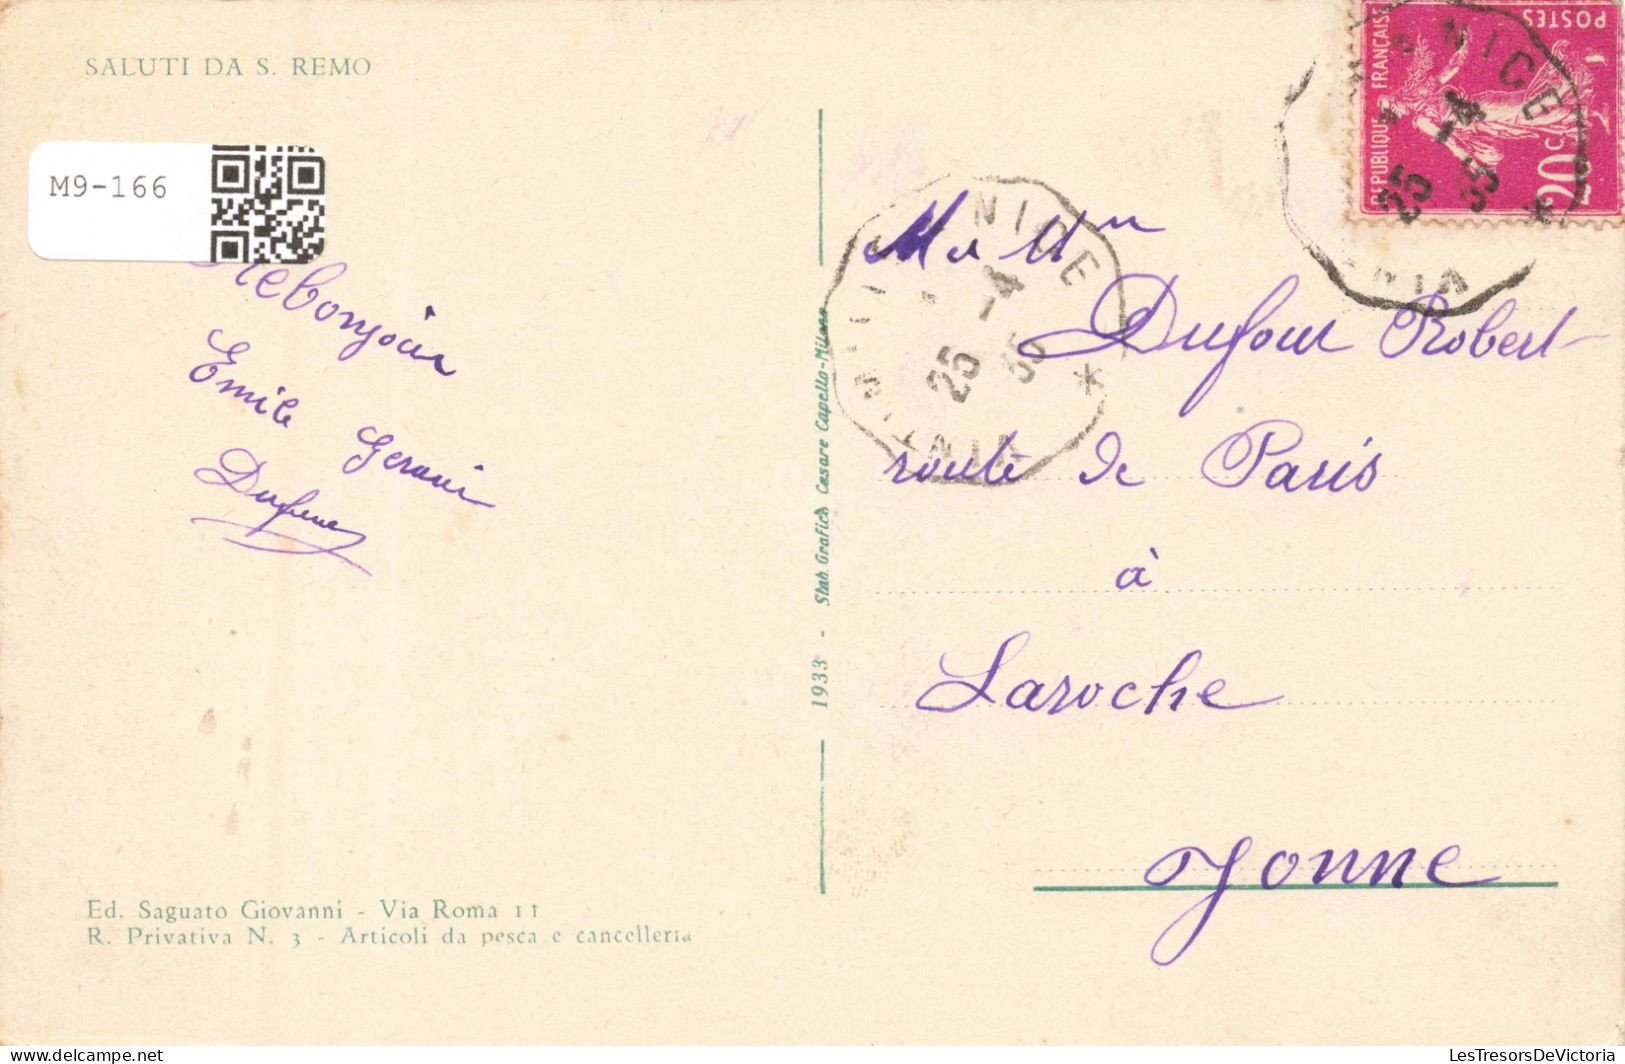 SALUTI DA S. REMO
M9-166
Emile
Dufour
Ed. Saguato Giovanni - Via Roma 11
R. Privativa N. 3 - Articoli da pesca e cancelleria
1933 - Stab. Grafico Cesare Capello-Milano
NICE
25 -4 35
VINTIMILLE
REPUBLIQUE FRANÇAISE
POSTES
20c
NICE
25 -4 35
M et Mme
Dufour Robert
route de Paris
à
Laroche
Yonne
LesTresorsDeVictoria